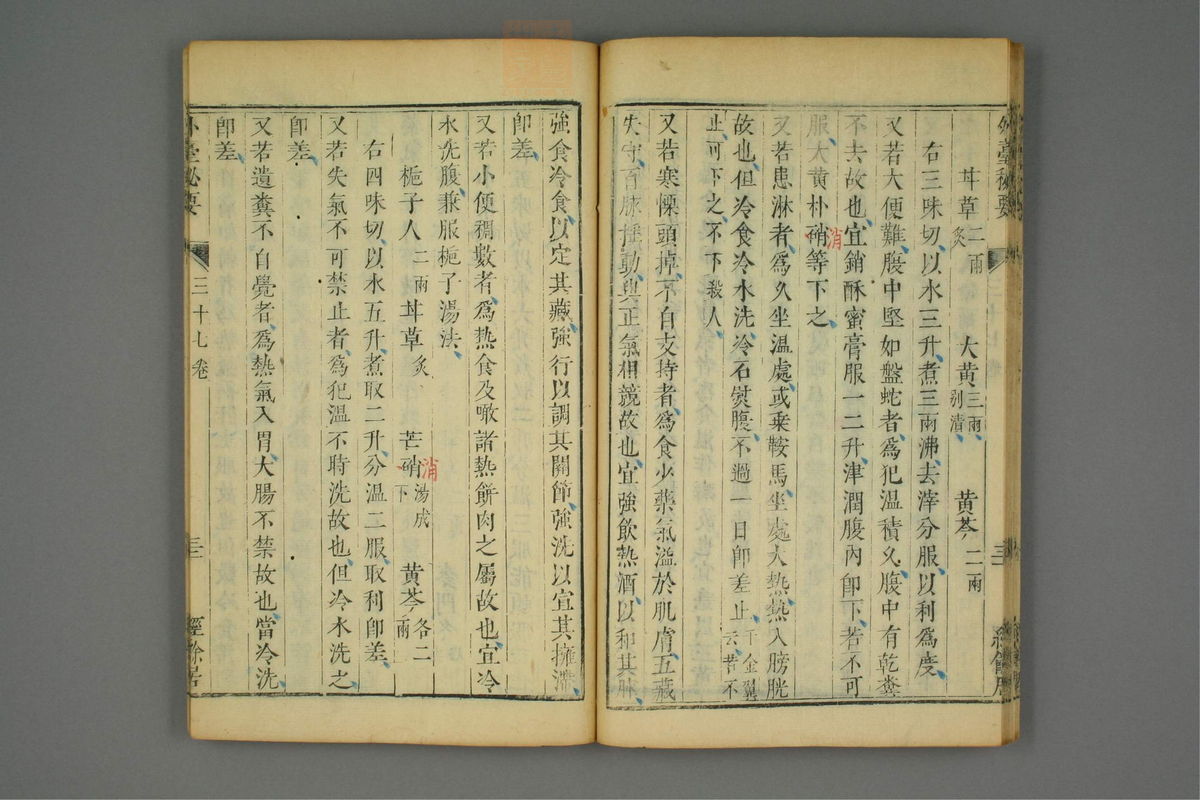 外臺秘要
經餘居
甘草二兩炙 大黃三兩別漬 黃芩二兩
右三味切以水三升煮三兩沸去滓分服以利為度
又若大便難腹中堅如盤蛇者為犯溫積久腹中有乾糞
不去故也宜銷酥蜜膏服一二升津潤腹內卽下若不可
服大黃朴硝等下之
消
又若患淋者為久坐溫處或乗鞍馬坐處大熱熱入膀胱
故也但冷食冷水洗冷石熨腹不過一日卽差止千金翼云若不
止可下之不下殺人
又若寒慄頭掉不自支持者為食少藥氣溢於肌膚五藏
失守百脉搖動與正氣相競故也宜強飲熱酒以和其脉
強食冷食以定其藏強行以調其關節強洗以宜其擁滯
卽差
又若小便稠數者為熱食及噉諸熱餅肉之屬故也宜冷
水洗腹兼服梔子湯法
梔子人二兩 甘草炙 芒硝湯成下 黃芩各二兩
消
右四味切以水五升煮取二升分溫二服取利卽差
又若失氣不可禁止者為犯溫不時洗故也但冷水洗之
卽差
又若遺糞不自覺者為熱氣入胃大腸不禁故也當冷洗
卽差
外臺秘要
三十七卷
三
經餘居